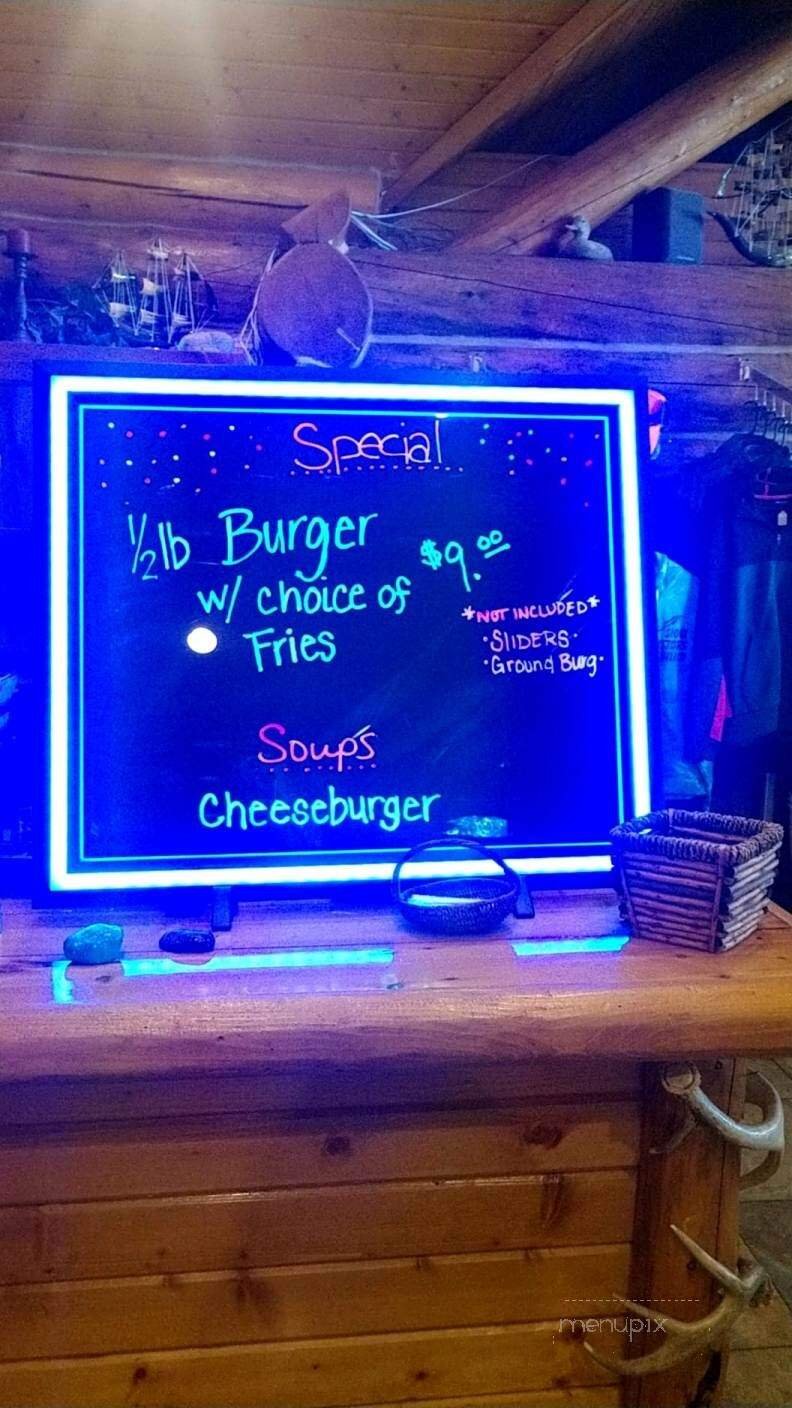 Special
1/2 lb Burger $9.00
w/ choice of
Fries
*NOT INCLUDED*
·SLIDERS·
·Ground Burg·
Soup's
Cheeseburger
menupix